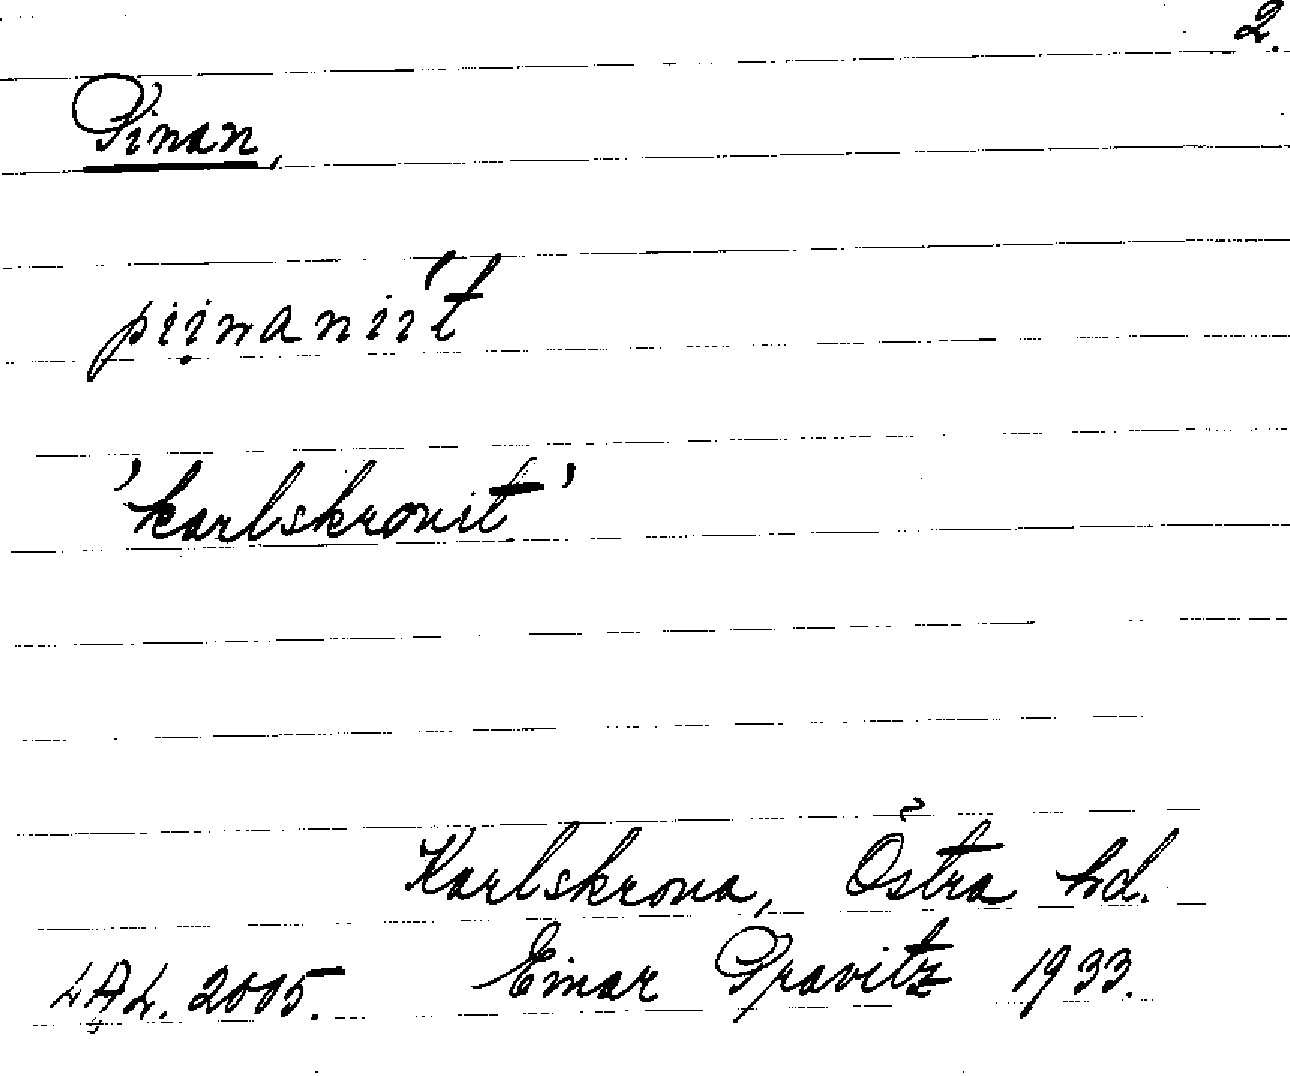 2.
Pinan,
piịnanii't
'karlskronit'
Karlskrona, Östra hd.
LAL. 2005. Einar Pravitz 1933.